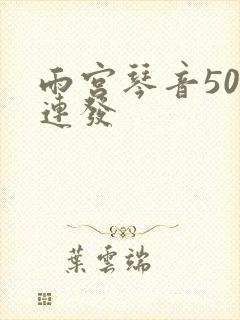 雨宮琴音50
連發
葉雲端